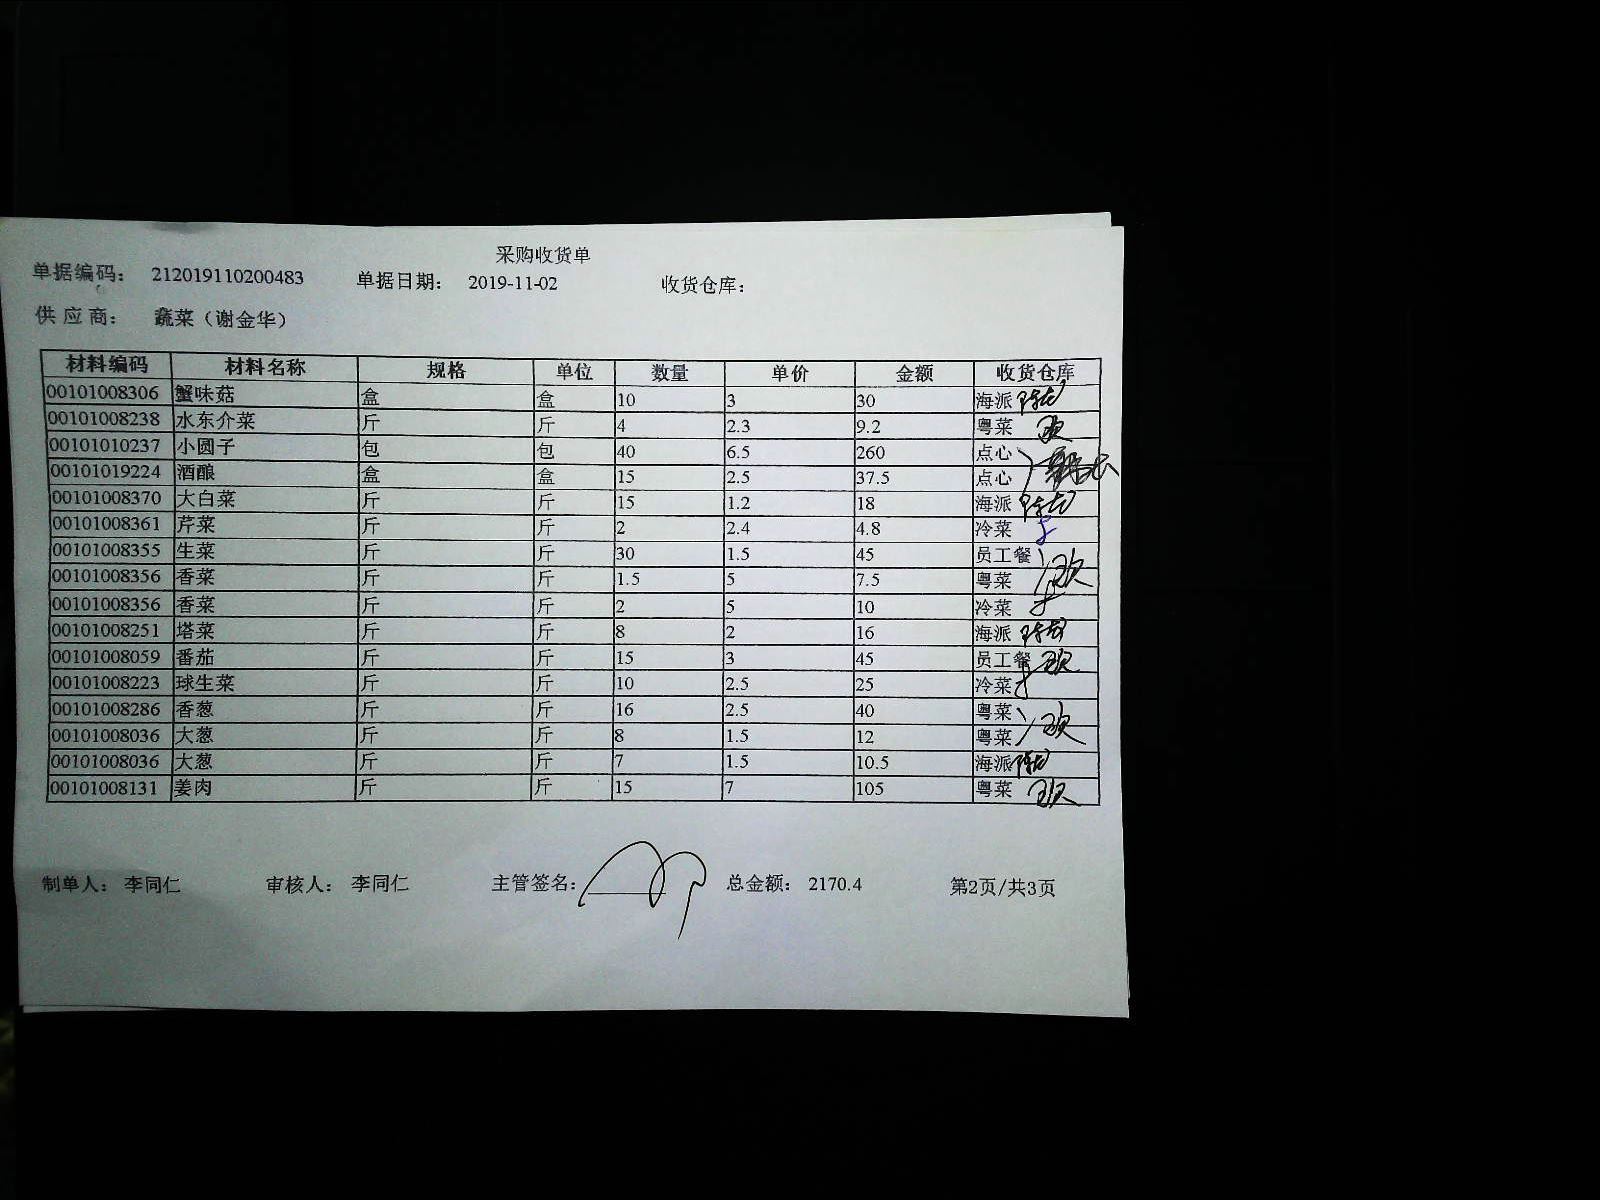 采购收货单
单据编码： 212019110200483 单据日期： 2019-11-02 收货仓库：
供应商： 蔬菜（谢金华）
材料编码 材料名称 规格 单位 数量 单价 金额 收货仓库
00101008306 蟹味菇 盒 盒 10 3 30 海派
00101008238 水东介菜 斤 斤 4 2.3 9.2 粤菜
00101010237 小圆子 包 包 40 6.5 260 点心
00101019224 酒酿 盒 盒 15 2.5 37.5 点心
00101008370 大白菜 斤 斤 15 1.2 18 海派
00101008361 芹菜 斤 斤 2 2.4 4.8 冷菜
00101008355 生菜 斤 斤 30 1.5 45 员工餐
00101008356 香菜 斤 斤 1.5 5 7.5 粤菜
00101008356 香菜 斤 斤 2 5 10 冷菜
00101008251 塔菜 斤 斤 8 2 16 海派
00101008059 番茄 斤 斤 15 3 45 员工餐
00101008223 球生菜 斤 斤 10 2.5 25 冷菜
00101008286 香葱 斤 斤 16 2.5 40 粤菜
00101008036 大葱 斤 斤 8 1.5 12 粤菜
00101008036 大葱 斤 斤 7 1.5 10.5 海派
00101008131 姜肉 斤 斤 15 7 105 粤菜
制单人： 李同仁 审核人： 李同仁 主管签名： 总金额： 2170.4 第2页/共3页